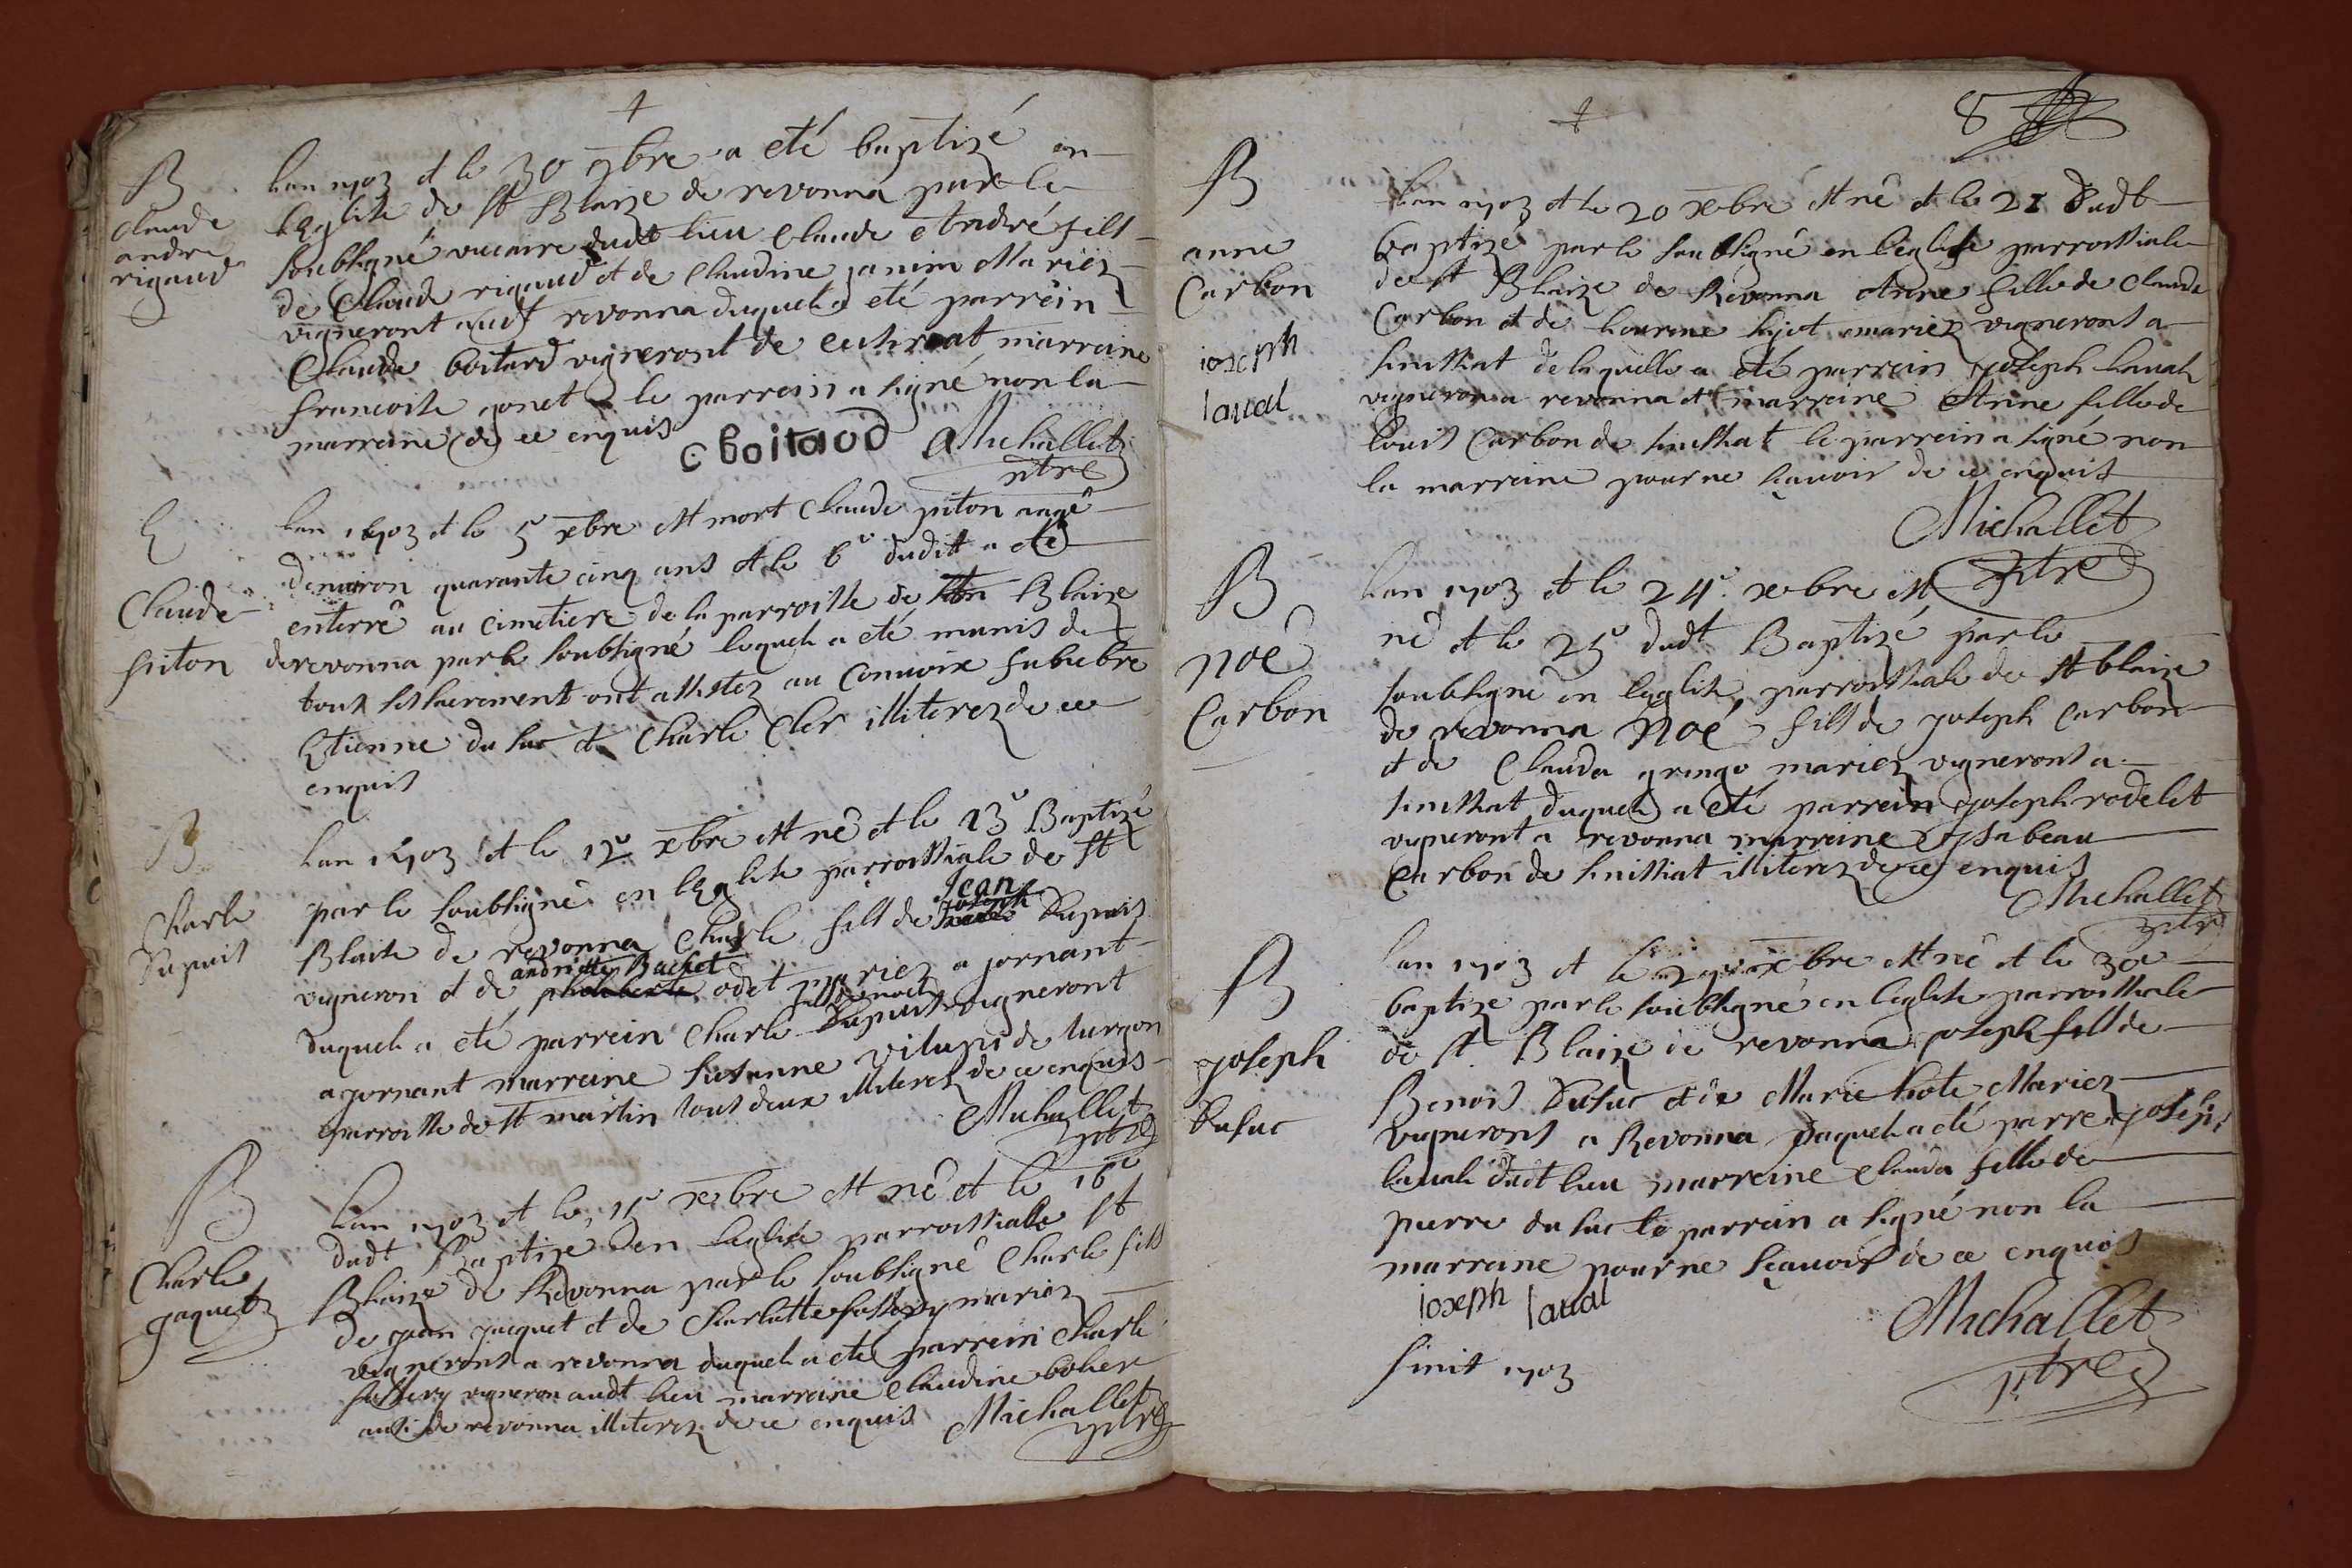 B
claude
andre
rigaud
Lan 1703 et le 30 9bre a eté baptizé en
lEglise de st Blaize de revonna par le
soubsigné viccaire dudt lieu Claude André fils
de Claude rigaud et de Claudine janin Mariez
vigneront audt revonna duquel a eté parrein
Claude boitard vigneront de marraine
francoise gonet le parrein a signé non la
marreine de ce enquis
c boitaod Michallet
ptre
E
Claude
piton
Lan 1703 et le 5e xbre est mort Claude piton aagé
denviron quarante cinq ans et le 6e dudit a eté
enterré au cimetiere de la parroisse de st Blaize
de revonna par le soubsigné lequel a eté munis de
tous ses sacrement ont assistez au convoix funebre
Etienne du suc et Charle Cler illiterez de ce
enquis
B
Charle
Dupuis
Lan 1703 et le 12e xbre est né et le 13e Baptizé
par le soubsigné en lEglise parrossiale de st
Blaise de revonna Charle fils de Jean Dupuis
vigneron et de andriette Bachet odet mariez a jornant
duquel a eté parrein Charle Dupuis fils de noel vigneront
a jornant marreine Susanne de
parroisse de st martin tous deux illiterez de ce enquis
Michallet
ptre
B
Charle
jaquet
Lan 1703 et le 15e xbre est né et le 16e
dudt Baptize en leglise parrossiale st
Blaize de Revonna par le soubsigné Charle fils
de jean jacquet et de Charlotte mariez
vignerons a revonna duquel a eté parrein Charle
vigneron audt lieu marreine Claudine
aussi de revonna illiterez de ce enquis Michallet
ptre
8
B
anne
Carbon
ioseph
laual
Lan 1703 et le 20 xbre est né et le 21 dudt
baptizé par le soubsigné en leglise parrossiale
de st Blaize de Revonna Anne fille de Claude
Carbon et de mariez vignerons a
simssat de laquelle a eté parrein joseph Laval
vigneron a revonna et marreine Anne fille de
Louis Carbon de simssat le parrein a signé non
la marreine pour ne sçavoir de ce enquis
Michallet
ptre
B
noé
Carbon
Lan 1703 et le 24e xbre est
né et le 25e dudt Baptizé par le
soubsigné en leglise parrossiale de st blaize
de revonna Noé fils de joseph Carbon
et de Clauda mariez vignerons a
simssat duquel a eté parrein joseph rodelet
vigneront a revonna marreine Ysabeau
Carbon de simssat illiterez de ce enquis
Michallet
ptre
B
joseph
Dusuc
Lan 1703 et le 29e xbre est né et le 30e
baptize par le soubsigné en leglise parrossiale
de st Blaize de revonna joseph fils de
Benois Dusuc et de Marie Mariez
vignerons a Revonna duquel a eté parrein joseph
Laval dudt lieu marreine Clauda fille de
pierre du suc le parrein a signé non la
marreine pour ne sçavoir de ce enquis
ioseph laual
Michallet
ptre
finit 1703